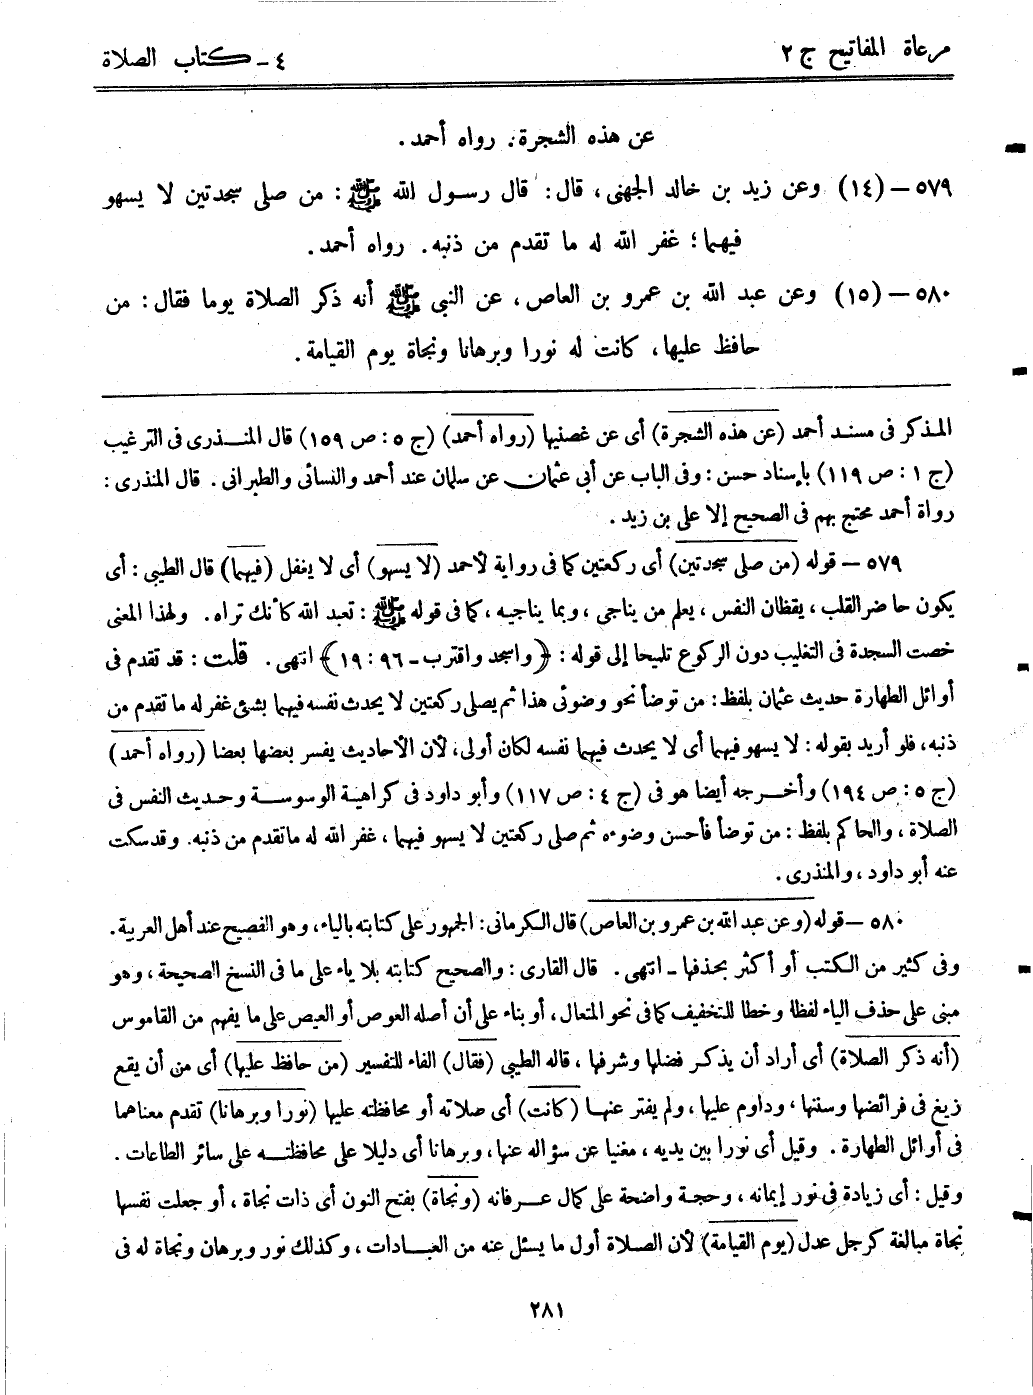 مرعاة المفاتيح ج ٢
٤ـ كتاب الصلاة
عن هذه الشجرة. رواه أحمد.
٥٧٩ – (١٤) وعن زيد بن خالد الجهنى، قال: قال رسول الله ﷺ: من صلى سجدتين لا يسهو
فيهما؛ غفر الله له ما تقدم من ذنبه. رواه أحمد.
٥٨٠ – (١٥) وعن عبد الله بن عمرو بن العاص، عن النبي ﷺ أنه ذكر الصلاة يوما فقال: من
حافظ عليها، كانت له نورا وبرهانا ونجاة يوم القيامة.
المذكر فى مسند أحمد (عن هذه الشجرة) أى عن غصنيها (رواه أحمد) (ج ٥: ص ١٥٩) قال المنذرى فى الترغيب
(ج ١: ص ١١٩) بإسناد حسن: وفى الباب عن أبى عثمان عن سلمان عند أحمد والنسائى والطبرانى. قال المنذرى:
رواة أحمد محتج بهم فى الصحيح إلا على بن زيد.
٥٧٩ – قوله (من صلى سجدتين) أى ركعتين كما فى رواية لأحمد (لا يسهو) أى لا يغفل (فيهما) قال الطيبى: أى
يكون حاضر القلب، يقظان النفس، يعلم من يناجى، وبما يناجيه، كما فى قوله ﷺ: تعبد الله كأنك تراه. ولهذا المعنى
خصت السجدة فى التغليب دون الركوع تلميحا إلى قوله: ﴿واسجد واقترب – ٩٦: ١٩﴾ انتهى. قلت: قد تقدم فى
أوائل الطهارة حديث عثمان بلفظ: من توضأ نحو وضوئى هذا ثم يصلى ركعتين لا يحدث نفسه فيهما بشئ غفر له ما تقدم من
ذنبه، فلو أريد بقوله: لا يسهو فيهما أى لا يحدث فيهما نفسه لكان أولى، لأن الأحاديث يفسر بعضها بعضا (رواه أحمد)
(ج ٥: ص ١٩٤) وأخرجه أيضا هو فى (ج ٤: ص ١١٧) وأبو داود فى كراهية الوسوسة وحديث النفس فى
الصلاة، والحاكم بلفظ: من توضأ فأحسن وضوءه ثم صلى ركعتين لا يسهو فيهما، غفر الله له ما تقدم من ذنبه. وقد سكت
عنه أبو داود، والمنذرى.
٥٨٠ – قوله (وعن عبد الله بن عمرو بن العاص) قال الكرمانى: الجمهور على كتابته بالياء، وهو الفصيح عند أهل العربية.
وفى كثير من الكتب أو أكثر بحذفها – انتهى. قال القارى: والصحيح كتابته بلا ياء على ما فى النسخ الصحيحة، وهو
مبنى على حذف الياء لفظا وخطا للتخفيف كما فى نحو المتعال، أو بناء على أن أصله العوص أو العيص على ما يفهم من القاموس
(أنه ذكر الصلاة) أى أراد أن يذكر فضلها وشرفها، قاله الطيبى (فقال) الفاء للتفسير (من حافظ عليها) أى من أن يقع
زيغ فى فرائضها وسنتها، وداوم عليها، ولم يفتر عنها (كانت) أى صلاته أو محافظته عليها (نورا وبرهانا) تقدم معناهما
فى أوائل الطهارة. وقيل أى نورا بين يديه، مغنيا عن سؤاله عنها، وبرهانا أى دليلا على محافظته على سائر الطاعات.
وقيل: أى زيادة فى نور إيمانه، وحجة واضحة على كمال عرفانه (ونجاة) بفتح النون أى ذات نجاة، أو جعلت نفسها
نجاة مبالغة كرجل عدل (يوم القيامة) لأن الصلاة أول ما يسئل عنه من العبادات، وكذلك نور وبرهان ونجاة له فى
٢٨١